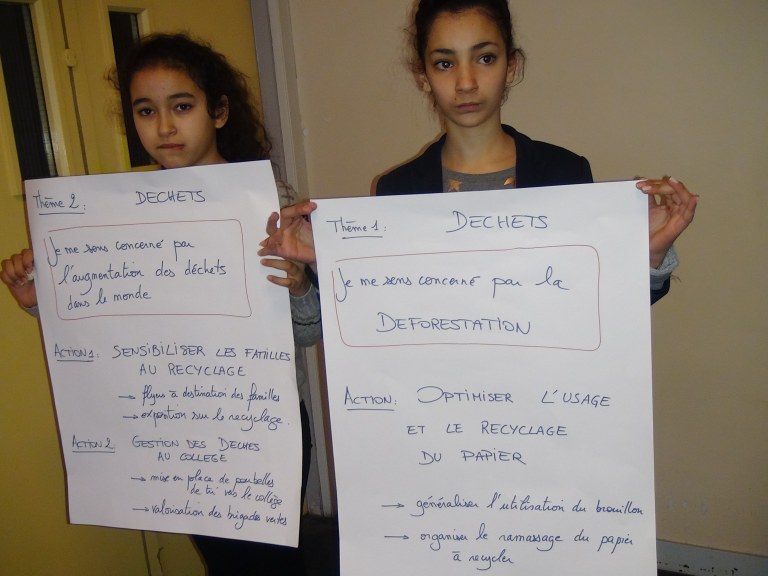 Thème 2: DECHETS
Je me sens concerné par
l'augmentation des déchets
dans le monde
ACTION 1: SENSIBILISER LES FATILLES
AU RECYCLAGE
→ flyers à destination des familles
→ exposition sur le recyclage.
ACTION 2 GESTION DES DECHES
AU COLLEGE
→ mise en place de poubelles
de tri vers le collège
→ valorisation des brigades vertes
Thème 1: DECHETS
Je me sens concerné par la
DEFORESTATION
ACTION: OPTIMISER L'USAGE
ET LE RECYCLAGE
DU PAPIER
→ généraliser l'utilisation du brouillon
→ organiser le ramassage du papier
à recycler